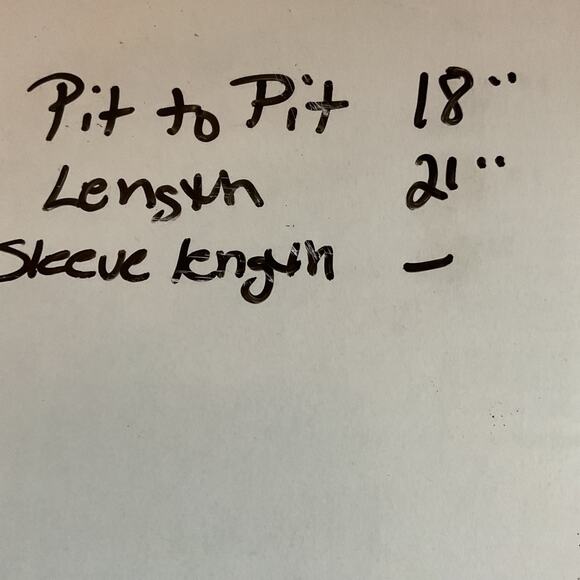 Pit to Pit 18"
Length 21"
Sleeve length –